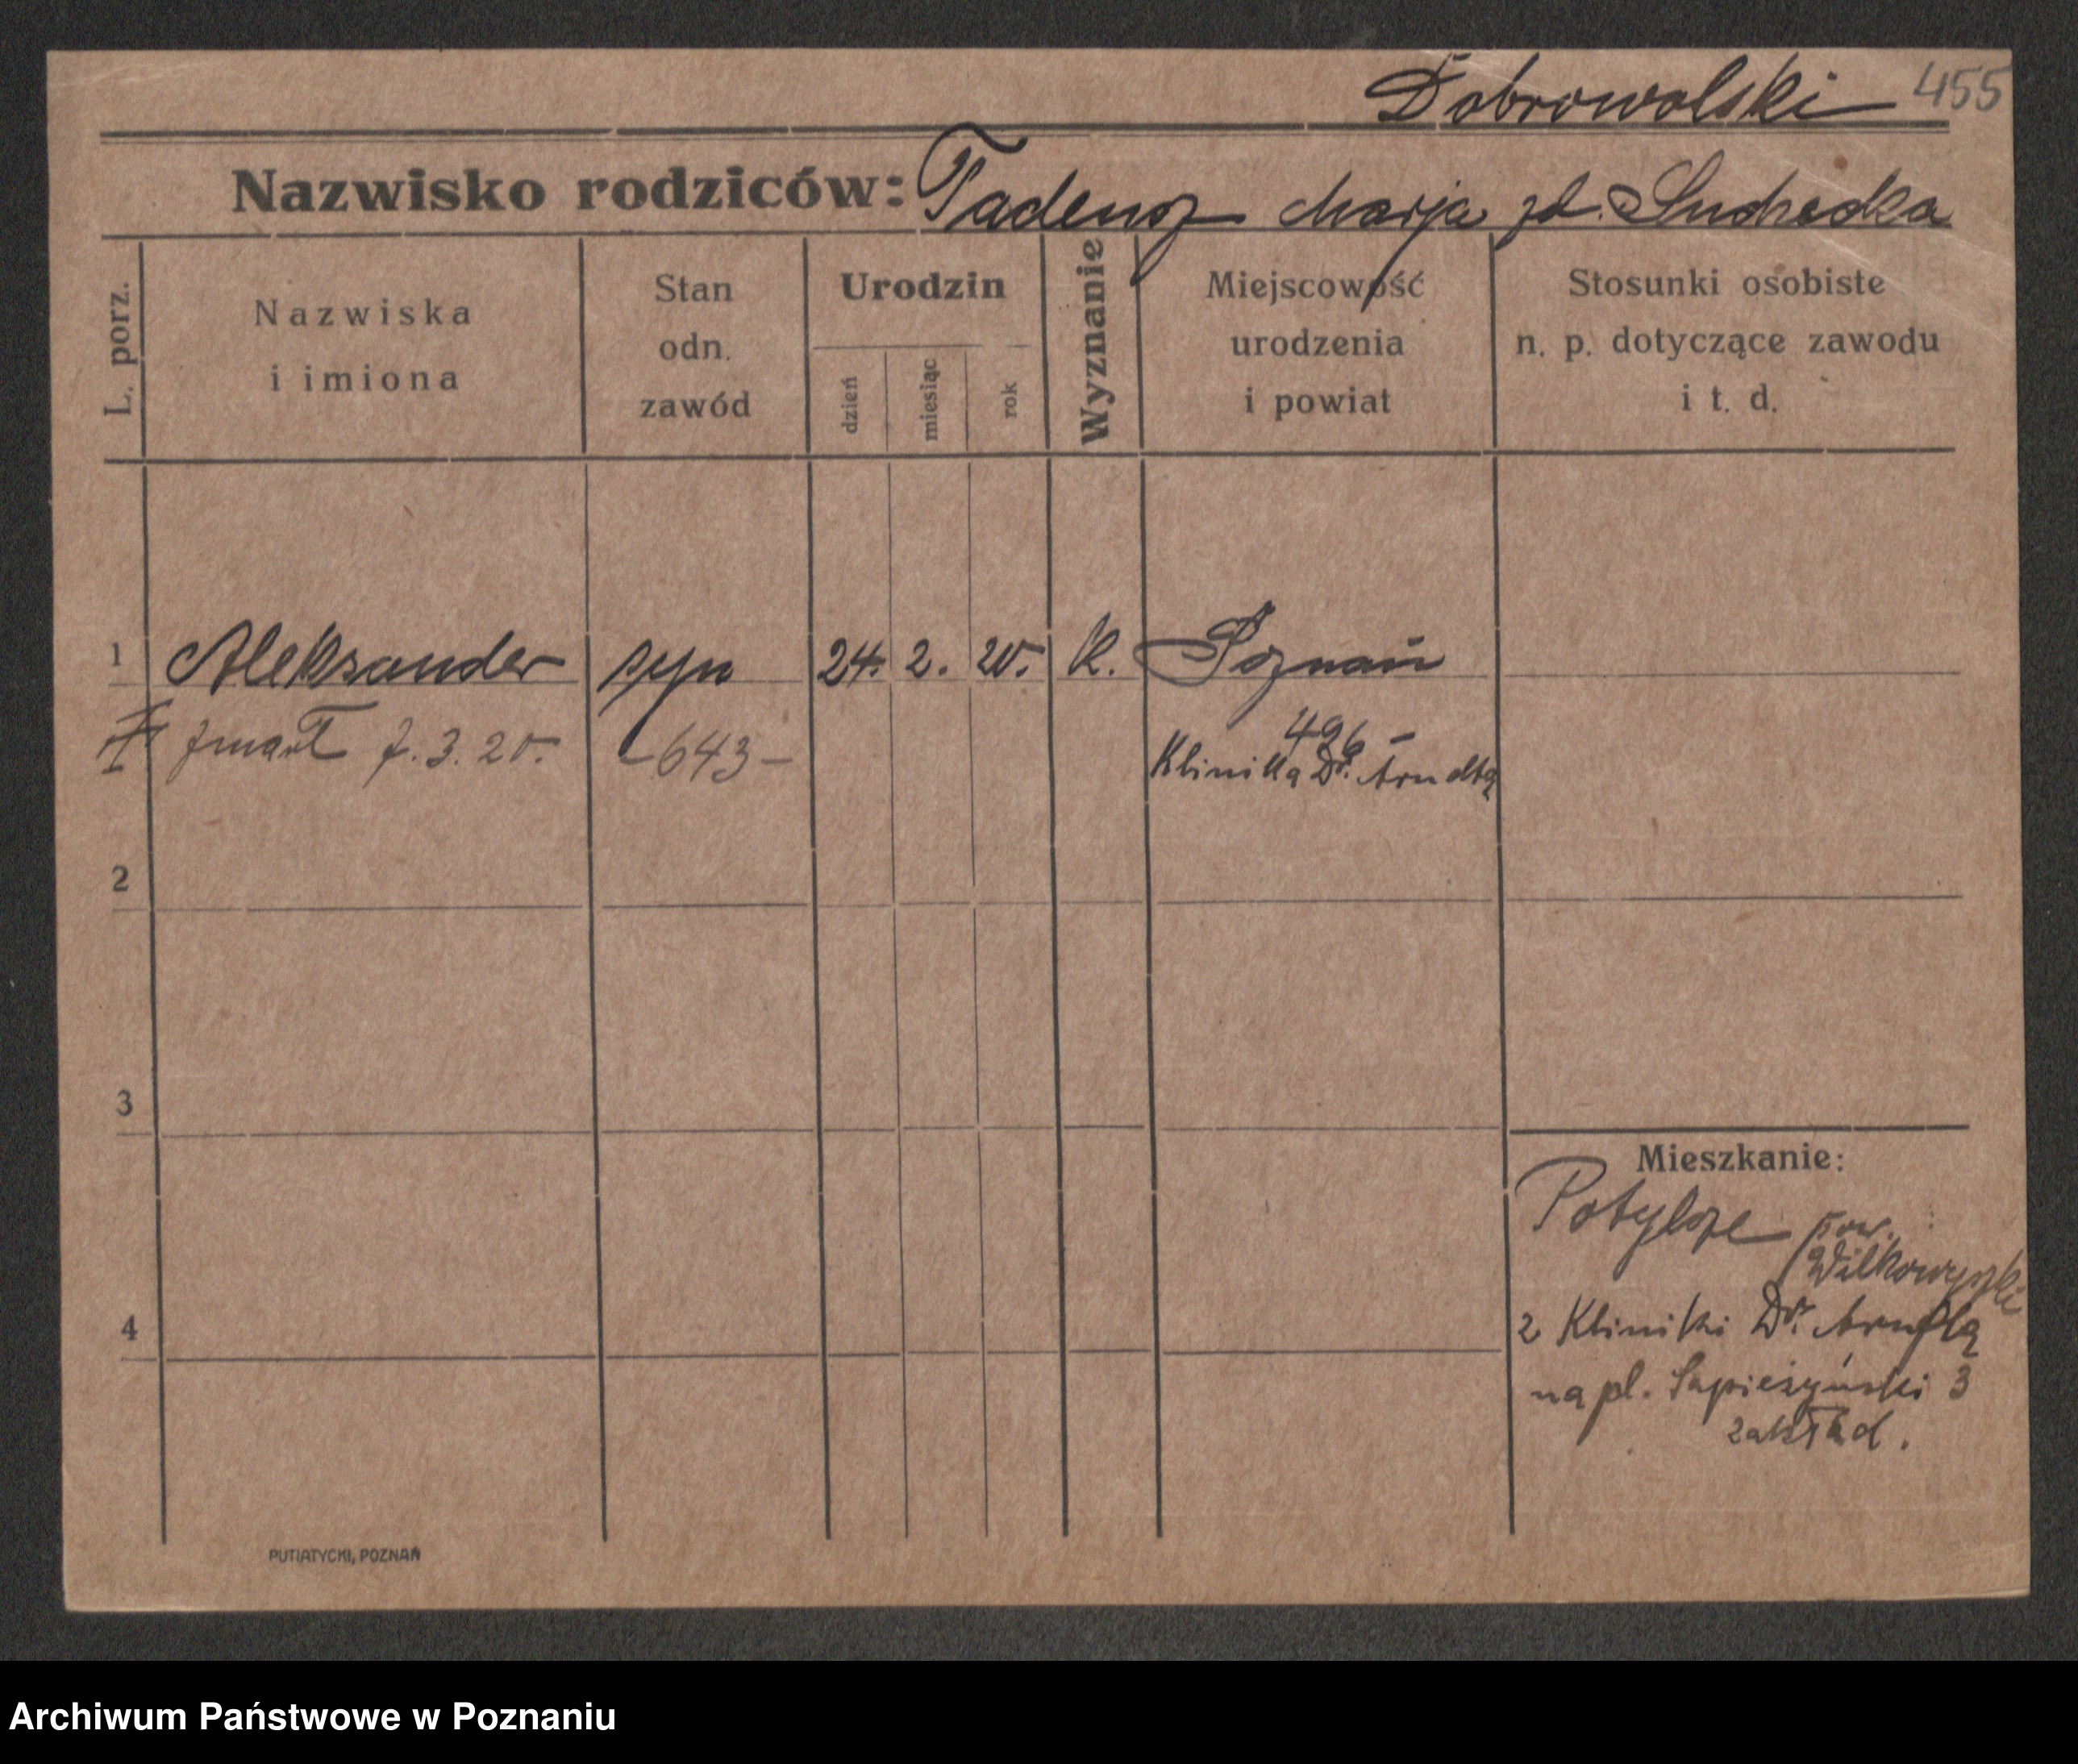 Dobrowolski 455
Nazwisko rodziców: Tadeusz Marja zd. Suchecka
L. porz.
Nazwiska
i imiona
Stan
odn.
zawód
Urodzin
dzień
miesiąc
rok
Wyznanie
Miejscowość
urodzenia
i powiat
Stosunki osobiste
n. p. dotyczące zawodu
i t. d.
1 Aleksander syn 24. 2. 20. k. Poznań
zmarł 7.3.20. -643- 496 -
Klinika Dr. Arndta
2
3
Mieszkanie:
pow.
Wilkowyszki
4
z Kliniki Dr. Arndta
na pl. Sapieżyński 3
zakład.
PUTIATYCKI, POZNAŃ
Archiwum Państwowe w Poznaniu